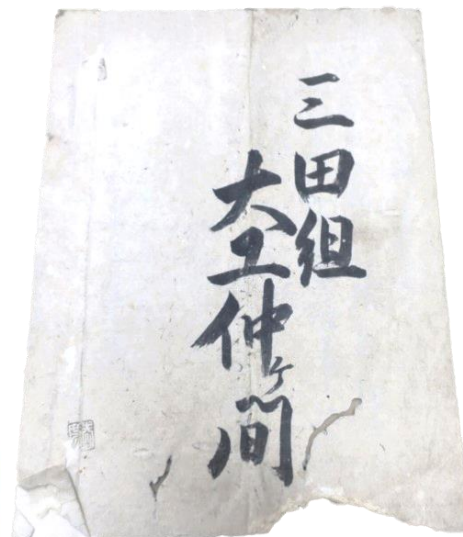 三田組
大工仲ヶ間